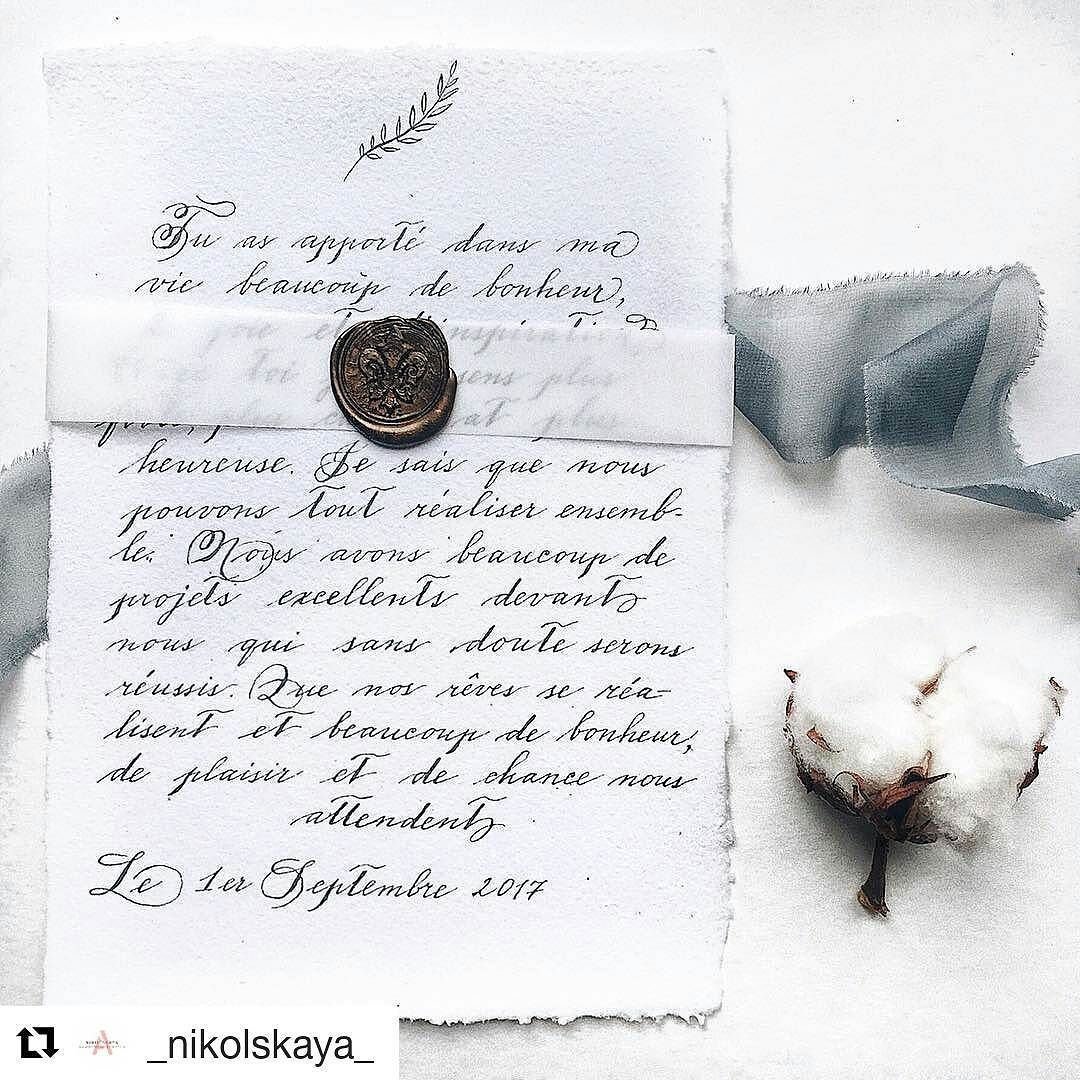 Tu as apporté dans ma
vie beaucoup de bonheur,
joie et l'inspiration
toi sens plus
plus
heureuse. Je sais que nous
pouvons tout réaliser ensemb-
le. Nous avons beaucoup de
projets excellents devant
nous qui sans doute serons
réussis. Que nos rêves se réa-
lisent et beaucoup de bonheur,
de plaisir et de chance nous
attendent
Le 1er Septembre 2017
_nikolskaya_